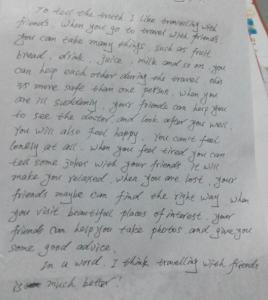 To tell the truth I like travelling with
friends. When you go to travel with friends
you can take many things, such as fruit
bread, drink, juice, milk and so on. you
can help each other during the travel
is more safe than one person. when you
are ill suddenly, your friends can help you
to see the doctor and look after you well.
You will also feel happy. You can't feel
lonely at all. when you feel tired you can
tell some jokes with your friends. it will
make you relaxed. when you are lost, your
friends maybe can find the right way. when
you visit beautiful places of interest, your
friends can help you take photos and give you
some good advice.
In a word, I think travelling with friends
is much better!